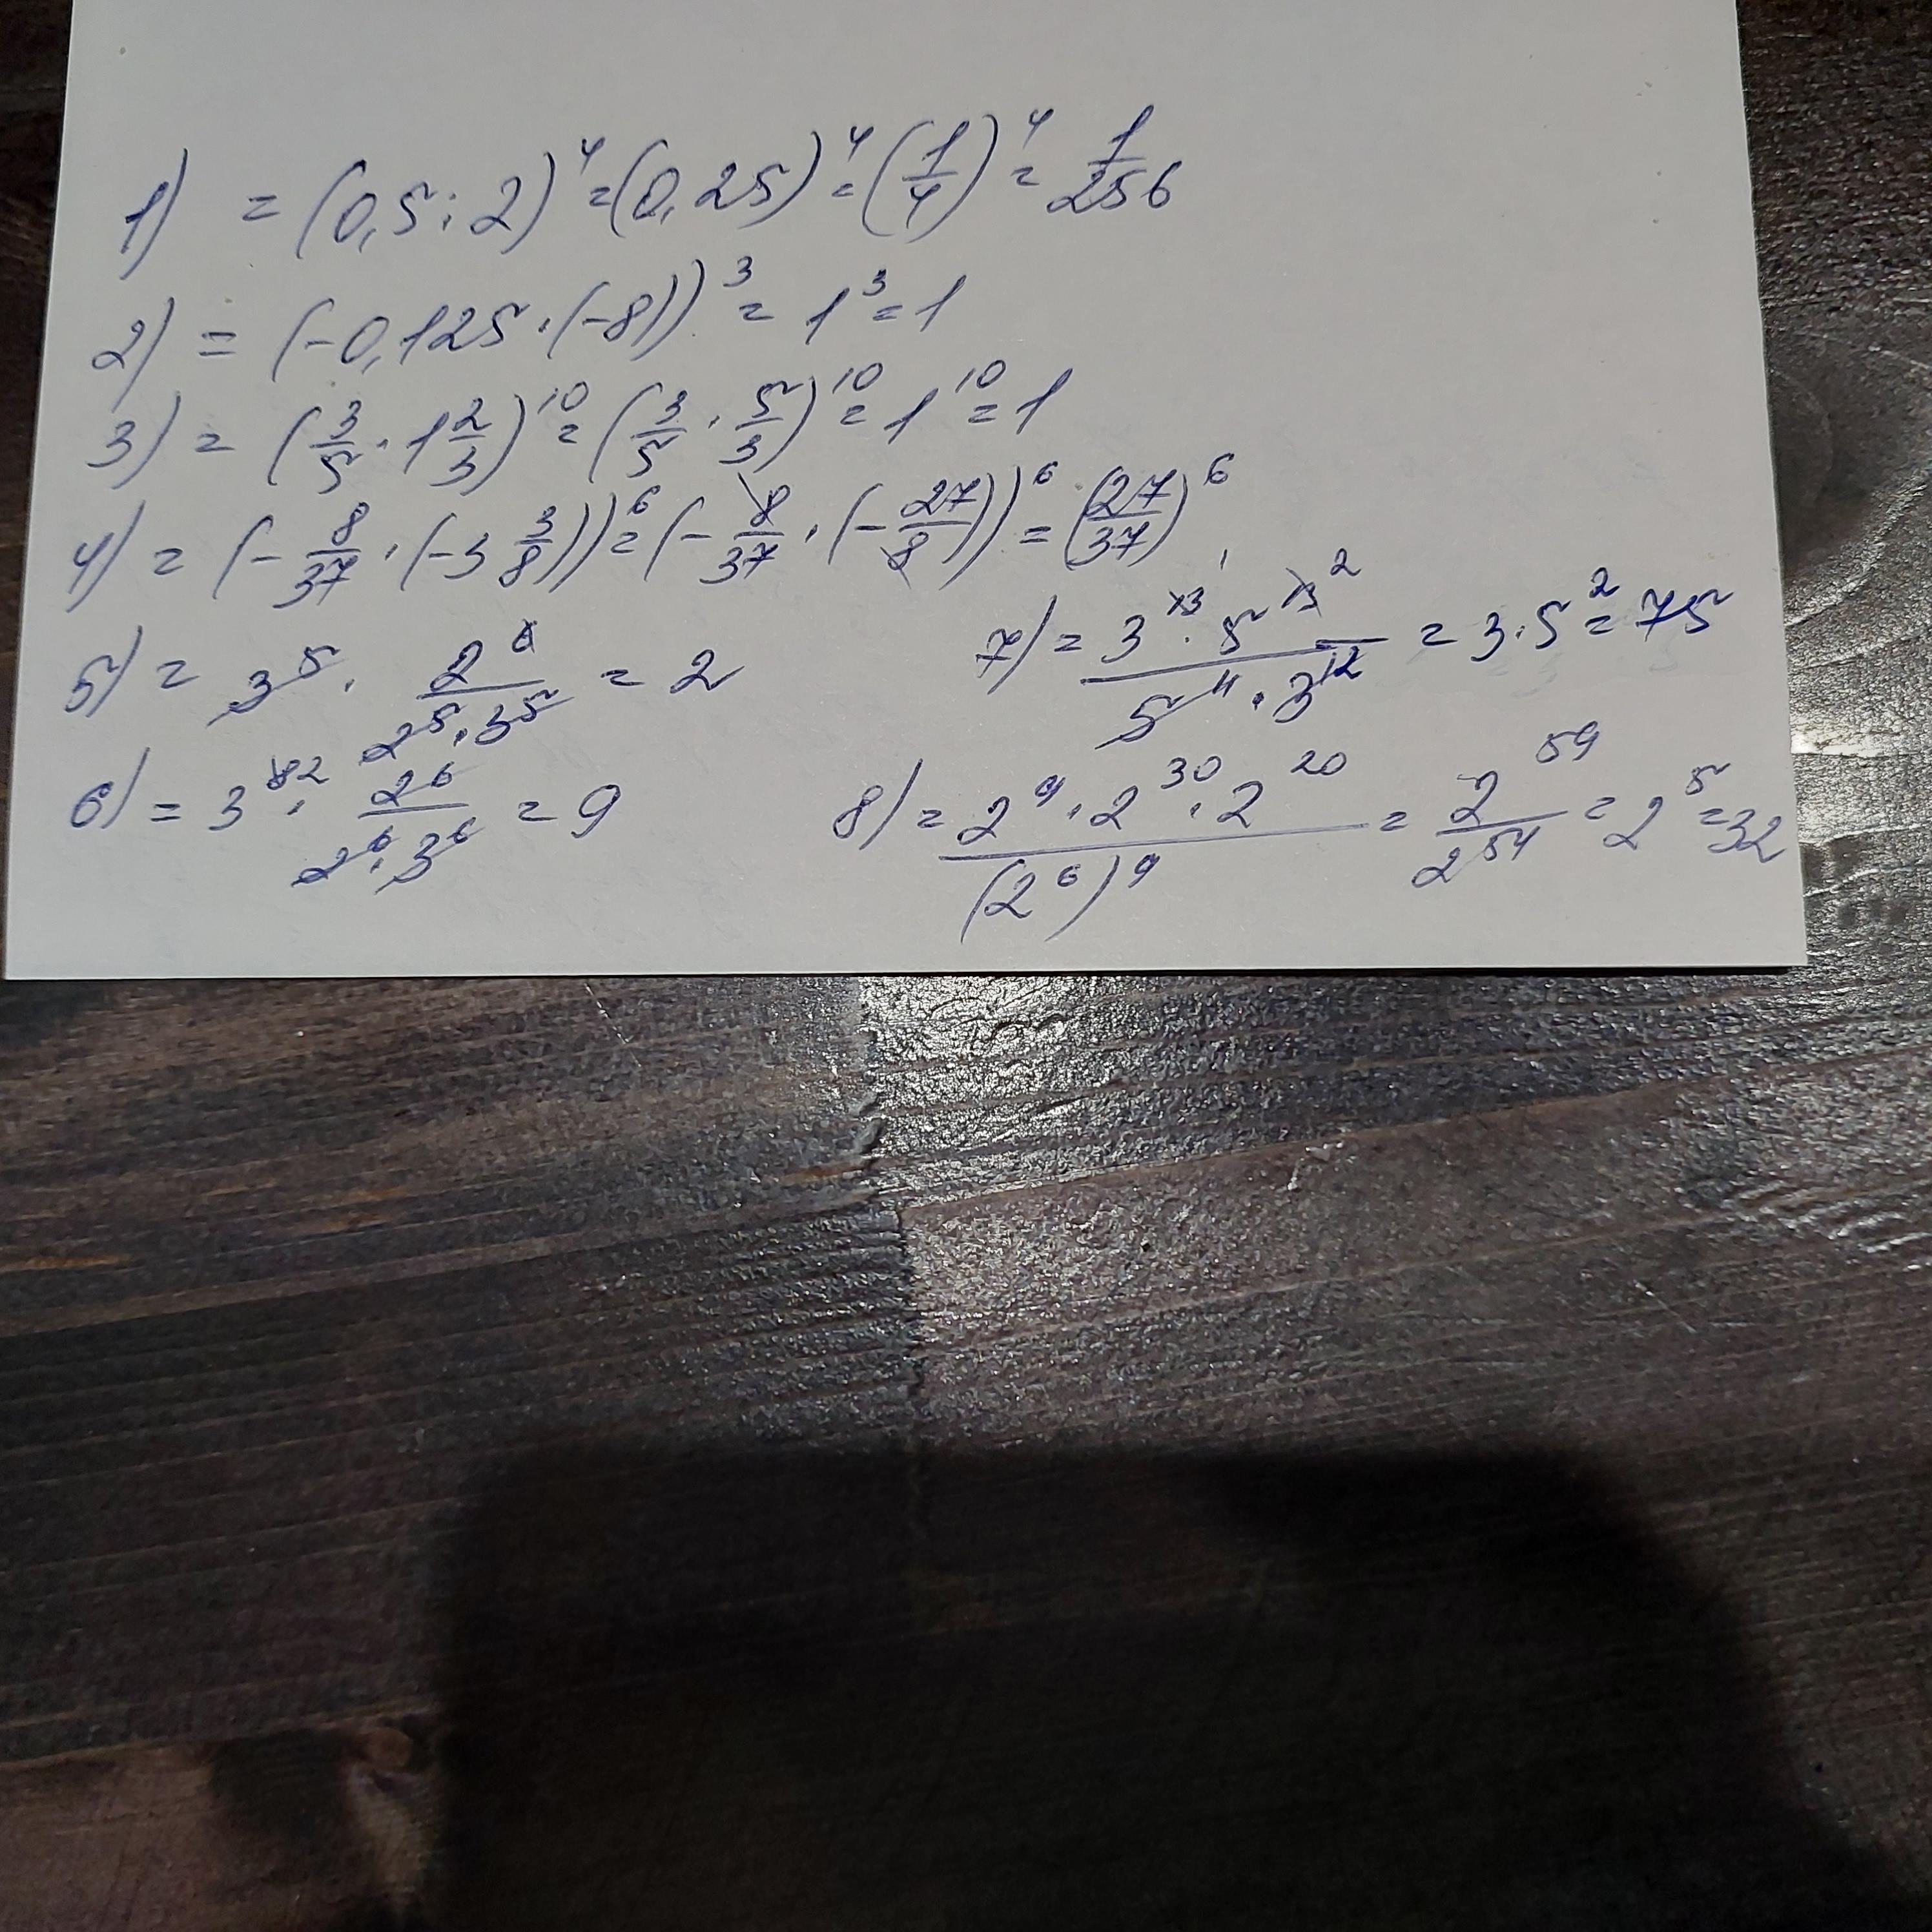 1) = (0,5 : 2)^4 = (0,25)^4 = (1/4)^4 = 1/256
2) = (-0,125 · (-8))^3 = 1^3 = 1
3) = (3/5 · 1 2/3)^10 = (3/5 · 5/3)^10 = 1^10 = 1
4) = (-8/37 · (-3 3/8))^6 = (-8/37 · (-27/8))^6 = (27/37)^6
5) = 3^5 · 2^6/(2^5 · 3^5) = 2
6) = 3^8 2 · 2^6/(2^6 · 3^6) = 9
7) = 3^13 1 · 5^13 2/(5^11 · 3^12) = 3 · 5^2 = 75
8) = 2^9 · 2^30 · 2^20/(2^6)^9 = 2^59/2^54 = 2^5 = 32